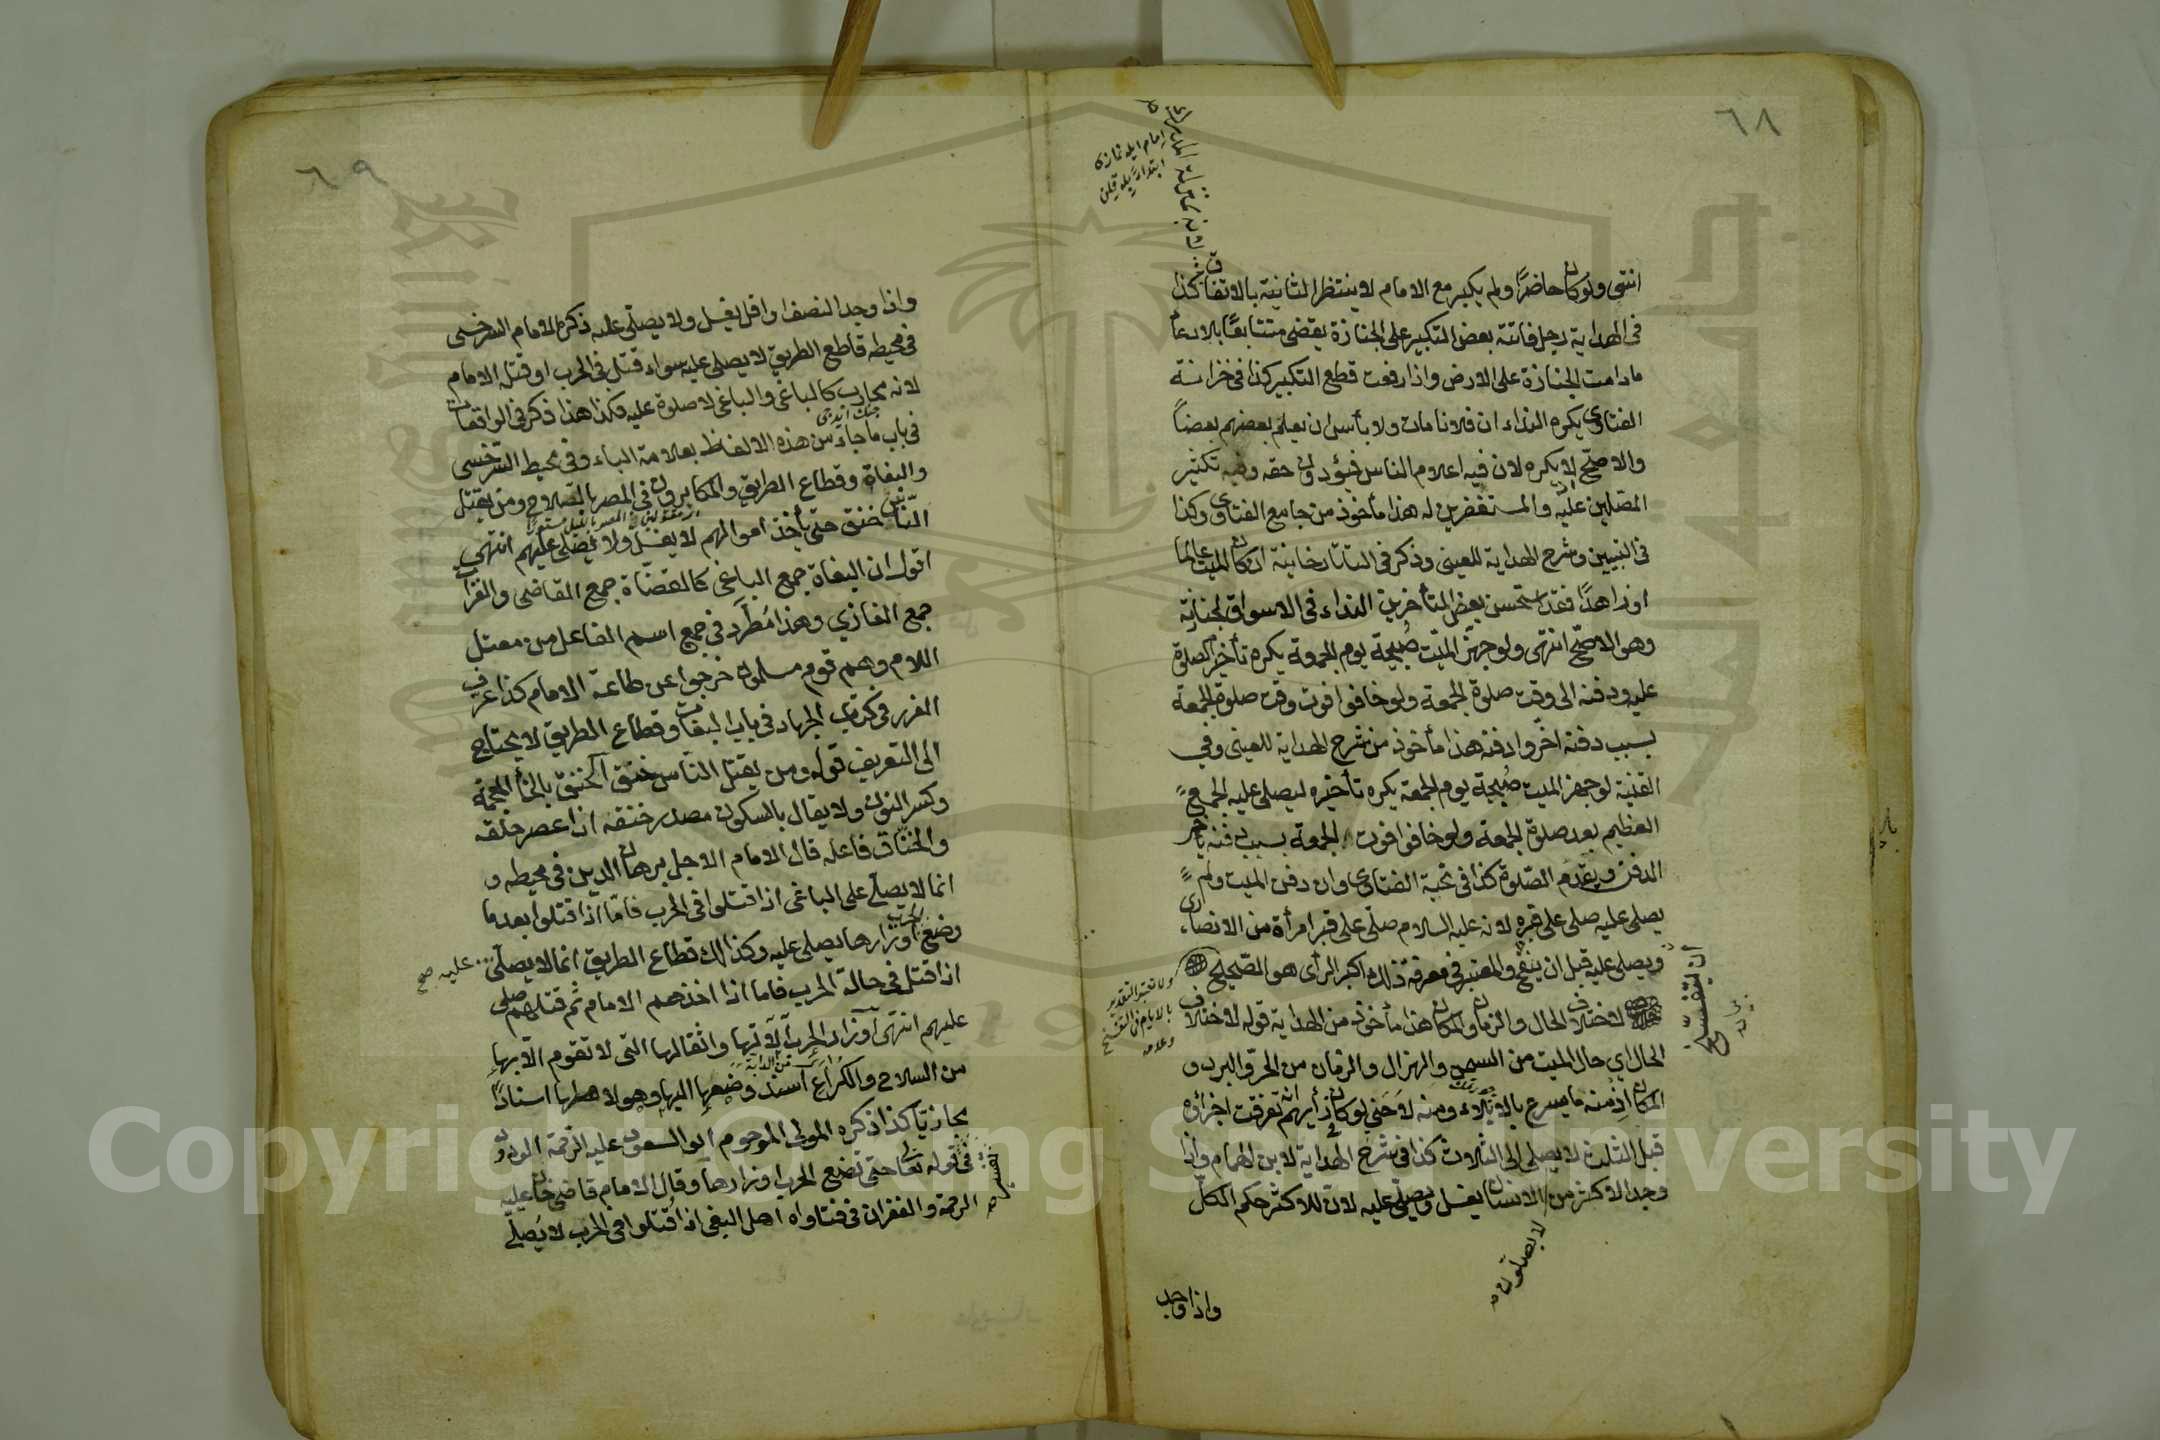 ٦٨
انتهى ولو كان حاضرًا ولم يكبر مع الامام لا ينتظر الثانية بالاتفاق كذا
في الهداية رجل فاتته بعض التكبير على الجنازة يقضى متتابعًا بلا دعاء
مادامت الجنازة على الارض واذا رفعت قطع التكبير كذا في خزانة
الفتاوى يكره النداء ان فلانا مات ولا بأس ان يعلم بعضهم بعضًا
والاصحّ لا يكره لان فيه اعلام الناس فيؤدون حقه وفيه تكثير
المصّلين عليه والمستغفرين له هذا مأخوذ من جامع الفتاوى وكذا
في التبيين وشرح الهداية للعينى وذكر في التاتارخانية ان كان الميت عالمًا
او زاهدًا فقد استحسن بعض المتأخرين النداء في الاسواق لجنازته
وهو الاصحّ انتهى ولو جهّز الميّت صُبيحة يوم الجمعة يكره تأخير الصلوة
عليه ودفنه الى وقت صلوة الجمعة ولو خافوا فوت وقت صلوة الجمعة
بسبب دفنه اخّروا دفنه هذا مأخوذ من شرح الهداية للعينى وفي
القنية لو جهز الميت صُبيحة يوم الجمعة يكره تأخيره ليصلى عليه الجمع
العظيم بعد صلوة الجمعة ولو خافوا فوت الجمعة بسبب دفنه يؤخر
الدفن ويقدّم الصّلوة كذا في نخبة الفتاوى وان دفن الميت ولم
يصلى عليه صلى على قبره لانه عليه السلام صلّى على قبر امرأة من الانصار
ويصلى عليه قبل ان يتفسّخ والمعتبر في معرفة ذلك اكبر الرأى هو الصّحيح
لاختلاف الحال والزمان والمكان هذا مأخوذ من الهداية قوله لاختلاف
الحال اي حال الميت من السمن والهزال والزمان من الحرّ والبرد و
المكان اذ منه ما يسرع بالابلاء ومنه لا حتى لو كان رأيهم انه تفرقت اجزاؤه
قبل الثلث لا يصلى الى الثلاث كذا في شرح الهداية لابن الهمام واذا
وجد الاكثر من الانسان يغسل ويصلّى عليه لان للاكثر حكم الكلّ
لا يصلون
واذا وجد
امام ايله نمازى
ولا تعتبر التقدير
بالايام في التفسخ
٦٩
واذا وجد النصف او اقل يغسل ولا يصلّى عليه ذكره الامام السرخسى
في محيطه قاطع الطريق لا يصلى عليه سواء قتل في الحرب او قتله الامام
لانه محارب كالباغى والباغى لا صلوة عليه فكذا هذا ذكر في الواقعات
في باب ما جاء من هذه الالفاظ بعلامة الباء وفي محيط السّرخسى
والبغاة وقطاع الطريق والمكابرون في المصر بالسّلاح ومن يقتل
النّاس خنق حتى يأخذ اموالهم لا يغسل ولا يصّلى عليهم انتهى
اقول ان البغاة جمع الباغى كالقضّاة جمع القاضى والغزاة
جمع الغازي وهذا مُطّرد في جمع اسم الفاعل من معتل
اللام وهم قوم مسلمون خرجوا عن طاعة الامام كذا عرف
الغرر في كتاب الجهاد في باب البغات وقطاع الطريق لا يحتاج
الى التعريف قوله ومن يقتل النّاس خنق الخنق بالخاء المعجمة
وكسر النون ولا يقال بالسكون مصدر خنقه اذا عصر حلقه
والخنّاق فاعله قال الامام الاجل برهان الدين في محيطه و
انما لا يصلّى على الباغى اذا قتلوا في الحرب فامّا اذا قتلوا بعد ما
وضع الحرب اوزارها يصلى عليه وكذالك قطاع الطريق انما لا يصلّى
عليه صح
اذا قتل في حالة الحرب فاما اذا اخذهم الامام ثم قتلهم صلى
عليهم انتهى اوزار الحرب آلاتها واثقالها التى لا تقوم الّا بها
من السلاح والكراع اسند وضعها اليها وهو لاهلها اسنادًا
مجازيّا كذا ذكره المولى المرحوم ابو السعود عليه الرّحمة الودود
في قوله تعالى حتى تضع الحرب اوزارها وقال الامام قاضيخان عليه
الرحمة والغفران في فتاواه اهل البغى اذا قتلوا في الحرب لا يصلّى
Copyright © King Saud University
1957